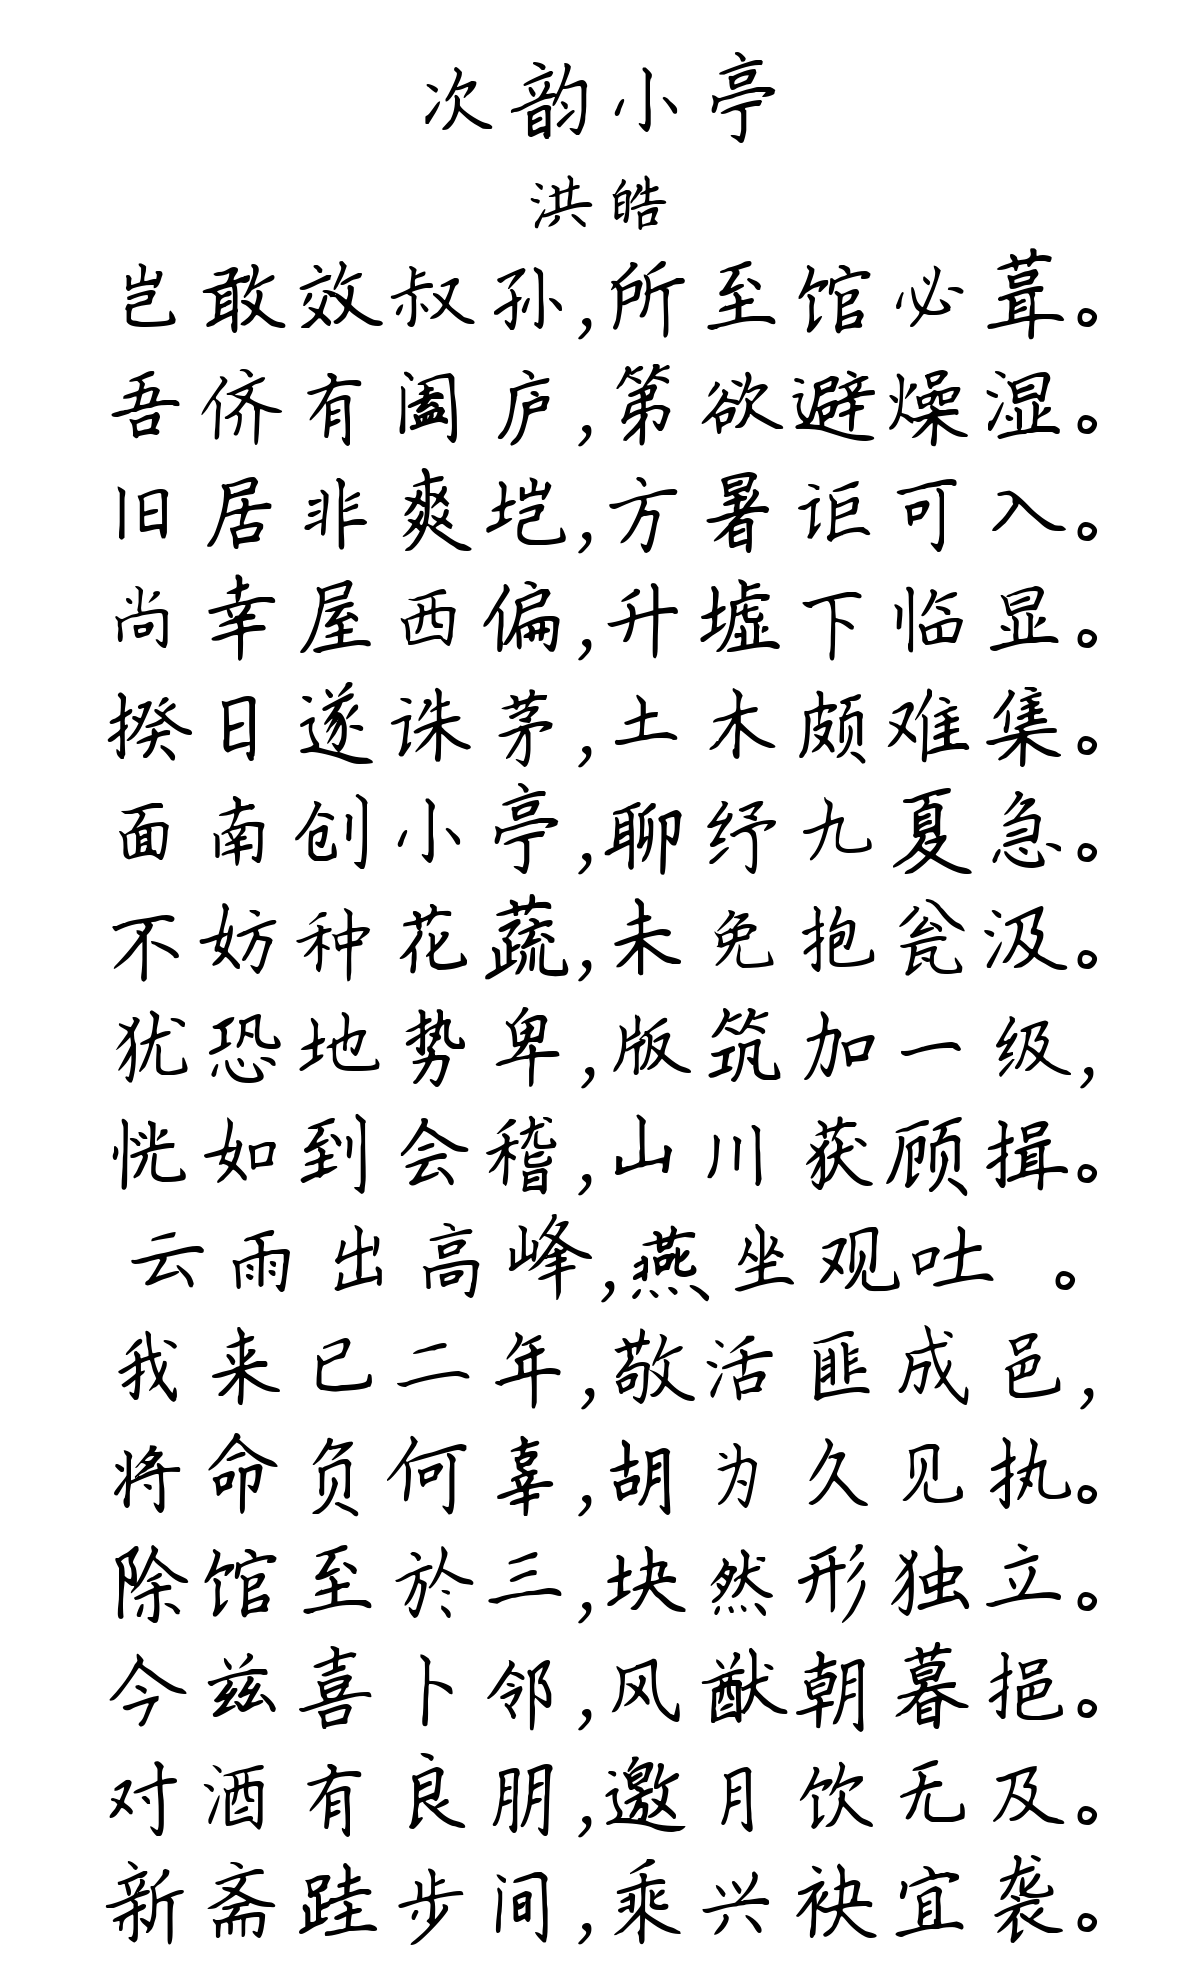 次韵小亭
洪皓
岂敢效叔孙,所至馆必葺。
吾侪有阖庐,第欲避燥湿。
旧居非爽垲,方暑讵可入。
尚幸屋西偏,升墟下临显。
揆日遂诛茅,土木颇难集。
面南创小亭,聊纾九夏急。
不妨种花蔬,未免抱瓮汲。
犹恐地势卑,版筑加一级,
恍如到会稽,山川获顾揖。
云雨出高峰,燕坐观吐 。
我来已二年,敬活匪成邑,
将命负何辜,胡为久见执。
除馆至於三,块然形独立。
今兹喜卜邻,风猷朝暮挹。
对酒有良朋,邀月饮无及。
新斋跬步间,乘兴袂宜袭。